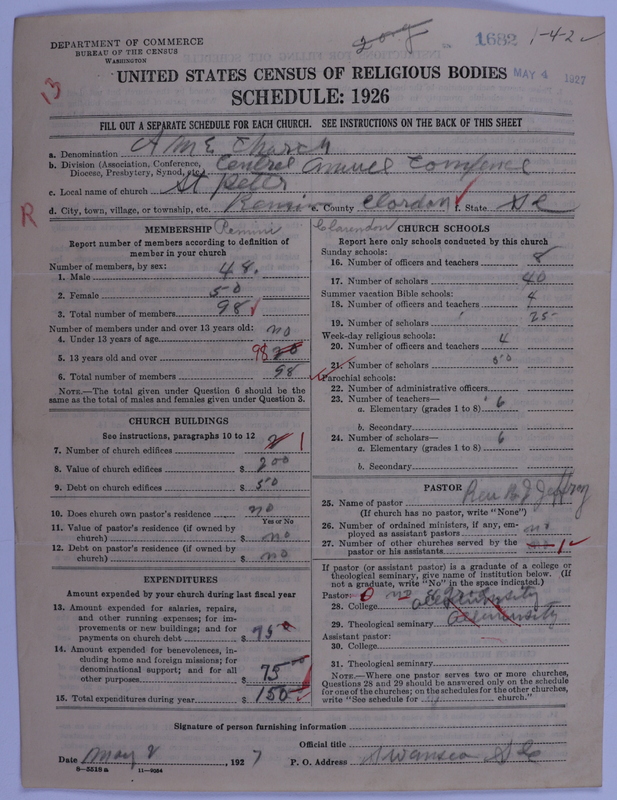 DEPARTMENT OF COMMERCE
BUREAU OF THE CENSUS
WASHINGTON
1682 1-4-2
UNITED STATES CENSUS OF RELIGIOUS BODIES
MAY 4 1927
SCHEDULE: 1926
13
FILL OUT A SEPARATE SCHEDULE FOR EACH CHURCH. SEE INSTRUCTIONS ON THE BACK OF THIS SHEET
a. Denomination A M E Church
b. Division (Association, Conference, Diocese, Presbytery, Synod, etc.) Central Annuel Conference
c. Local name of church St Peter
d. City, town, village, or township, etc. Remini e. County Clordon f. State S C
R
MEMBERSHIP Remini
Report number of members according to definition of
member in your church
Number of members, by sex:
1. Male 48.
2. Female 50
3. Total number of members 98
Number of members under and over 13 years old:
4. Under 13 years of age no
5. 13 years old and over 98 20
6. Total number of members 98
NOTE.—The total given under Question 6 should be the
same as the total of males and females given under Question 3.
CHURCH BUILDINGS
See instructions, paragraphs 10 to 12
7. Number of church edifices 2 1
8. Value of church edifices $ 200
9. Debt on church edifices $ 50
10. Does church own pastor's residence no
Yes or No
11. Value of pastor's residence (if owned by
church) $ no
12. Debt on pastor's residence (if owned by
church) $ no
EXPENDITURES
Amount expended by your church during last fiscal year
13. Amount expended for salaries, repairs,
and other running expenses; for im-
provements or new buildings; and for
payments on church debt $ 75
14. Amount expended for benevolences, in-
cluding home and foreign missions; for
denominational support; and for all
other purposes $ 75
15. Total expenditures during year $ 150
Clarendon CHURCH SCHOOLS
Report here only schools conducted by this church
Sunday schools:
16. Number of officers and teachers 8
17. Number of scholars 40
Summer vacation Bible schools:
18. Number of officers and teachers 4
19. Number of scholars 25
Week-day religious schools:
20. Number of officers and teachers 4
21. Number of scholars 50
Parochial schools:
22. Number of administrative officers
23. Number of teachers—
a. Elementary (grades 1 to 8) 6
b. Secondary
24. Number of scholars—
a. Elementary (grades 1 to 8) 6
b. Secondary
PASTOR
25. Name of pastor Rev Jeffrey
(If church has no pastor, write "None")
26. Number of ordained ministers, if any, em-
ployed as assistant pastors no
27. Number of other churches served by the
pastor or his assistants no 1
If pastor (or assistant pastor) is a graduate of a college or
theological seminary, give name of institution below. (If
not a graduate, write "No" in the space indicated.)
Pastor: 0 no
28. College
29. Theological seminary
Assistant pastor:
30. College
31. Theological seminary
NOTE.—Where one pastor serves two or more churches,
Questions 28 and 29 should be answered only on the schedule
for one of the churches; on the schedules for the other churches,
write "See schedule for church."
Signature of person furnishing information
Official title
Date May 2, 1927 P. O. Address Swansea S C
8—5519 a 11—9094